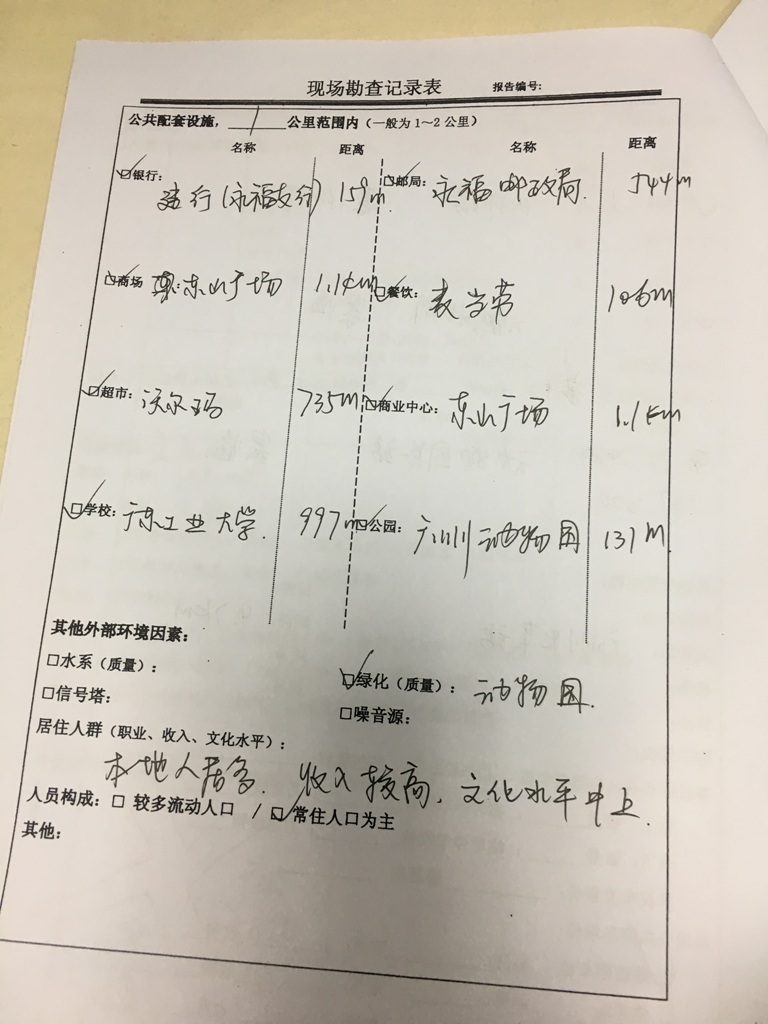 现场勘查记录表 报告编号:
公共配套设施，1公里范围内（一般为1～2公里）
名称 距离 名称 距离
☑银行: 建行(永福支行) 159m ☑邮局: 永福邮政局. 544m
☑商场 : 东山广场 1.1km ☑餐饮: 麦当劳 106m
☑超市: 沃尔玛 735m ☑商业中心: 东山广场 1.1km
☑学校: 广东工业大学. 997m ☑公园: 广州动物园 131m
其他外部环境因素:
□水系（质量）: ☑绿化（质量）: 动物园.
□信号塔: □噪音源:
居住人群（职业、收入、文化水平）:
本地人居多. 收入较高, 文化水平中上.
人员构成: □ 较多流动人口 / ☑ 常住人口为主
其他: